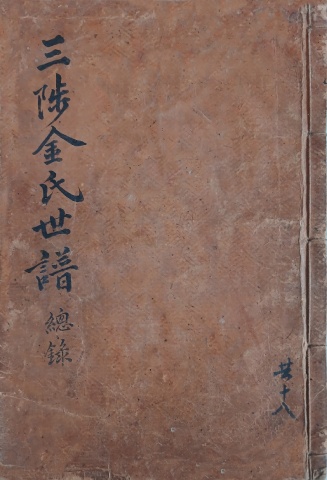 三陟金氏世譜 總錄
共十八